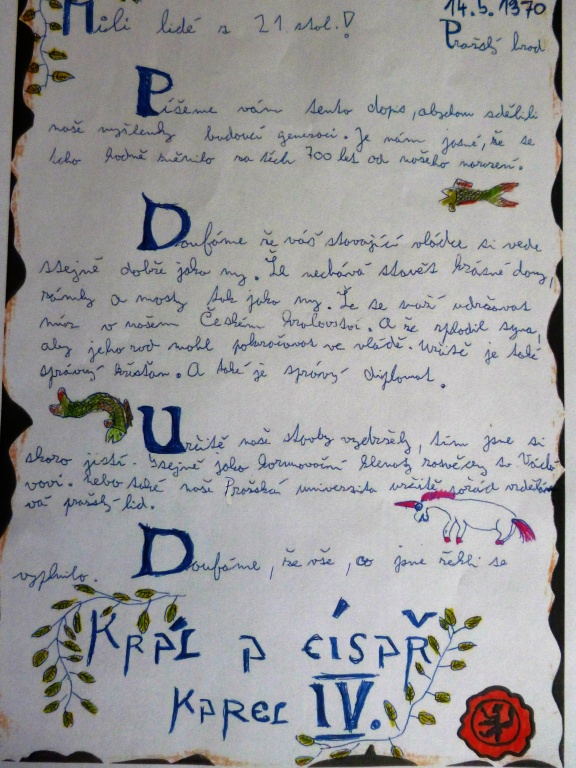 14.5.1370
Milí lidé z 21 stol.!
Pražský hrad
Píšeme vám tento dopis, abychom sdělili
naše myšlenky budoucí generaci. Je nám jasné, že se
toho hodně změnilo za těch 700 let od našeho narození.
Doufáme že váš stávající vládce si vede
stejně dobře jako my. Že nechává stavět krásné domy,
zámky a mosty tak jako my. Že se snaží udržovat
mír v našem Českém království. A že zplodil syna,
aby jeho rod mohl pokračovat ve vládě. Určitě je také
správný křesťan. A také je správný diplomat.
Určitě naše stavby vydržely, tím jsme si
skoro jistí. Stejně jako korunovační klenoty zasvěceny sv. Václa
vovi. Nebo také naše Pražská univerzita určitě pořád vzdělá
vá pražský lid.
Doufáme, že vše, co jsme řekli se
vyplnilo.
Král a císař
Karel IV.